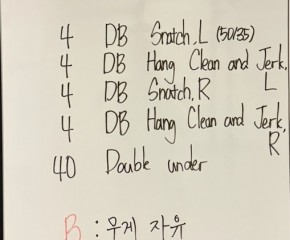 4 DB Snatch, L (50/35)
4 DB Hang Clean and Jerk, L
4 DB Snatch, R
4 DB Hang Clean and Jerk, R
40 Double under
B : 무게 자유